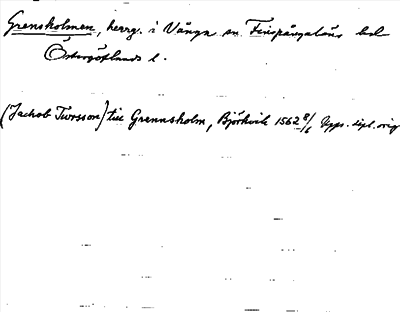 Grensholmen, herrg. i Vånga sn Finspångaläns hd
Östergötlands l.
(Jachob Twrsson) till Grennsholm, Björkvik 1562 8/6 Upps. dipl. orig